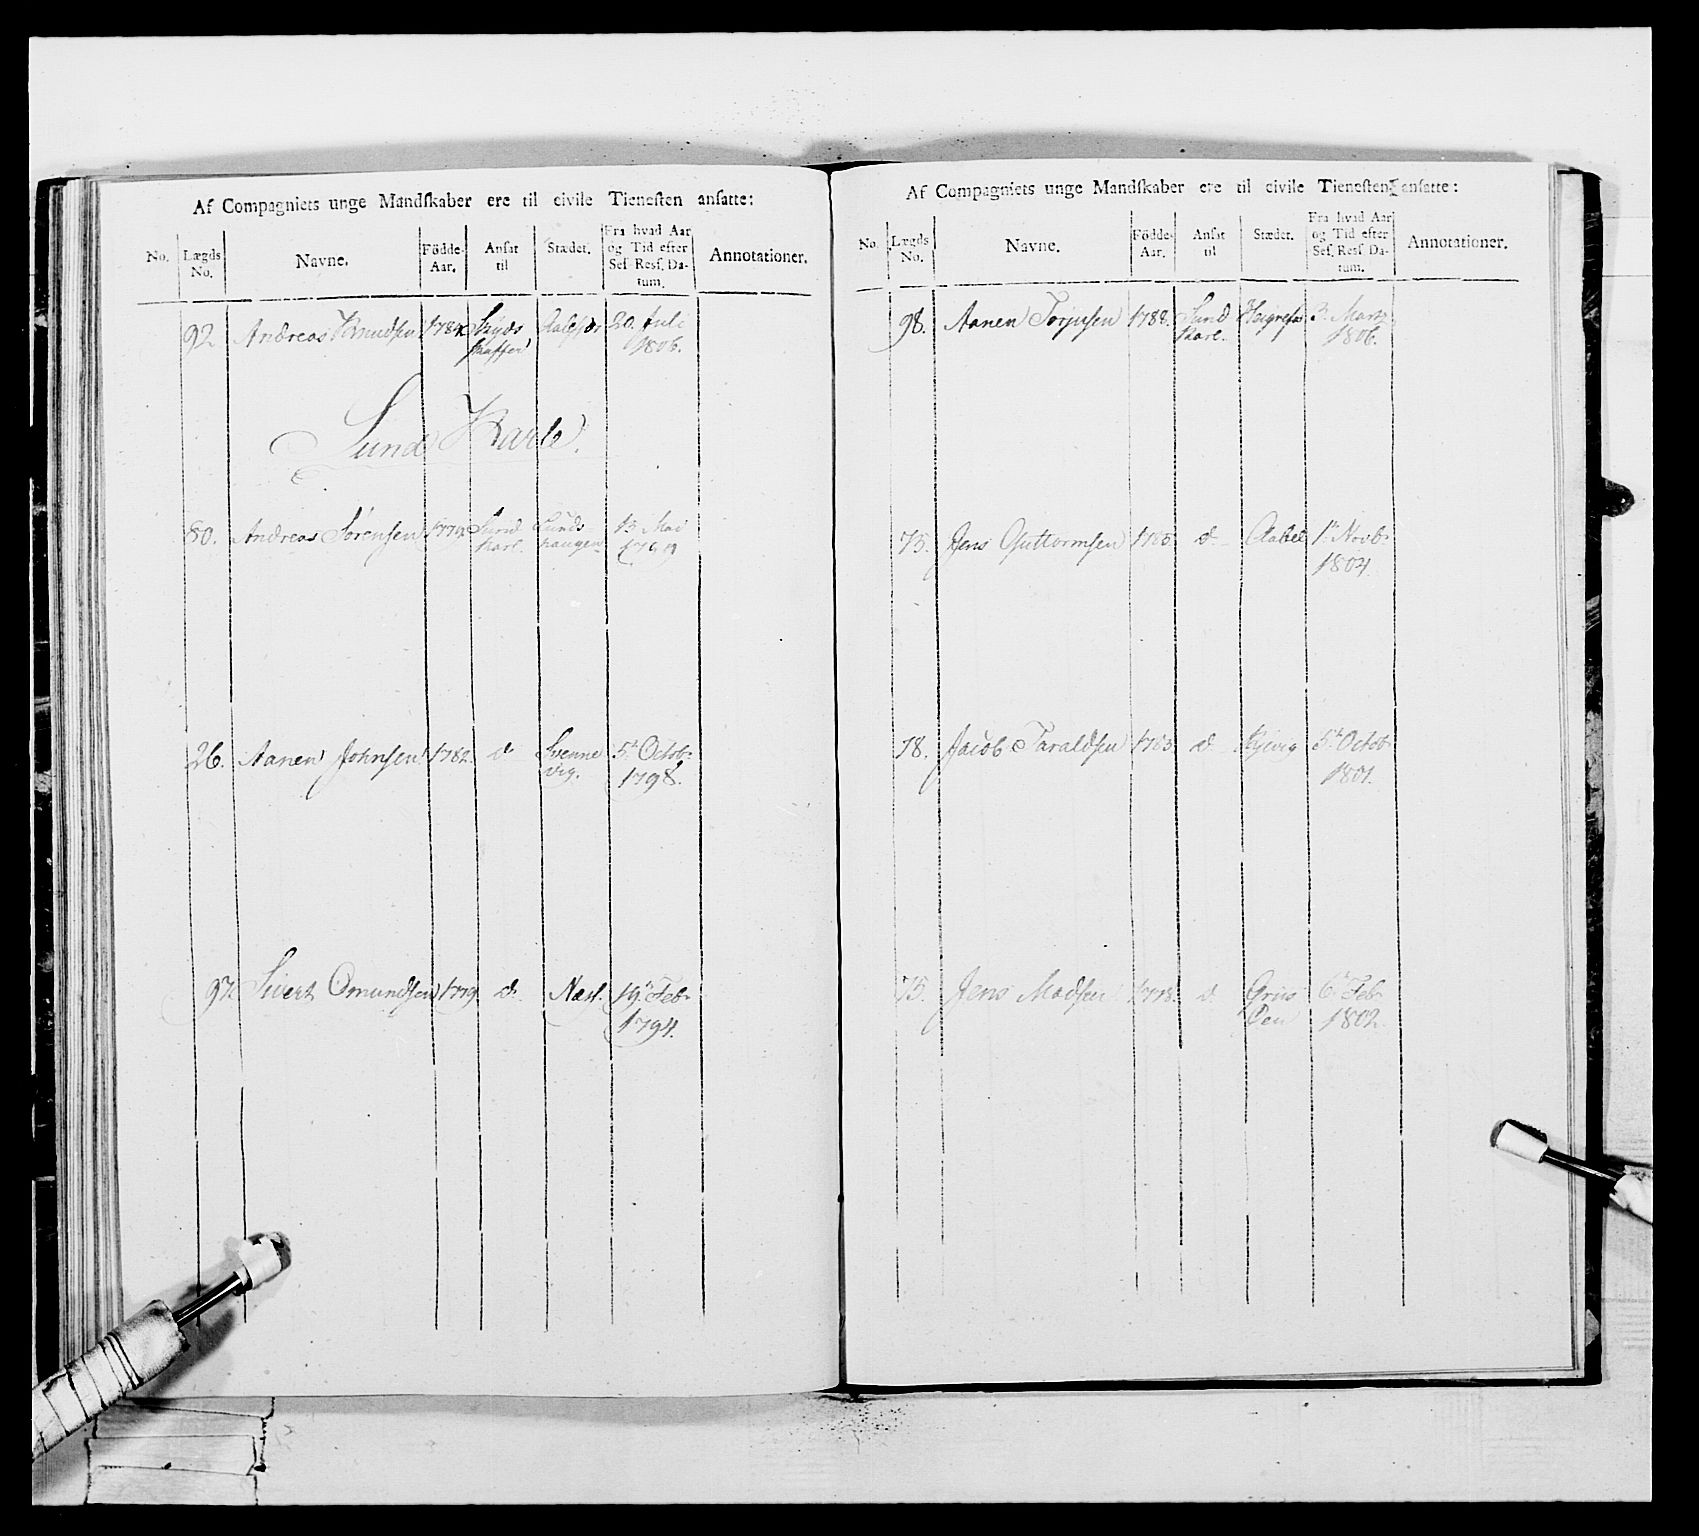 Af Compagniets unge Mandskaber ere til civile Tienesten ansatte:
No. Lægds No. Navne. Födde-Aar. Ansat til Stædet. Fra hvad Aar og Tid efter Ses. Res. Datum. Annotationer.
92. Andreas Knudsen Skyds 20. Juli
skaffer 1806.
Sund Karle.
80. Andreas Sørensen Sund Sunds 13. Mai
Karl. haugen
26. Aanen Johnsen 1782. d. Svenne 5te Octob.
vig. 1798.
Sivert Omundsen 1779 d. Næss. 19. Feb.
1794.
Af Compagniets unge Mandskaber ere til civile Tienesten ansatte:
No. Lægds No. Navne. Födde-Aar. Ansat til Stædet. Fra hvad Aar og Tid efter Ses. Res. Datum. Annotationer.
98. Aanen Torjusen 1788. Sund 3. Marz
Karl. 1806.
75. Jens Guttormsen d. 1. Novb.
1804.
78. Jacob Taraldsen d. 5te Octob.
1801.
75. Jens Madsen 1778. d. 6te Feb.
Øen 1802.